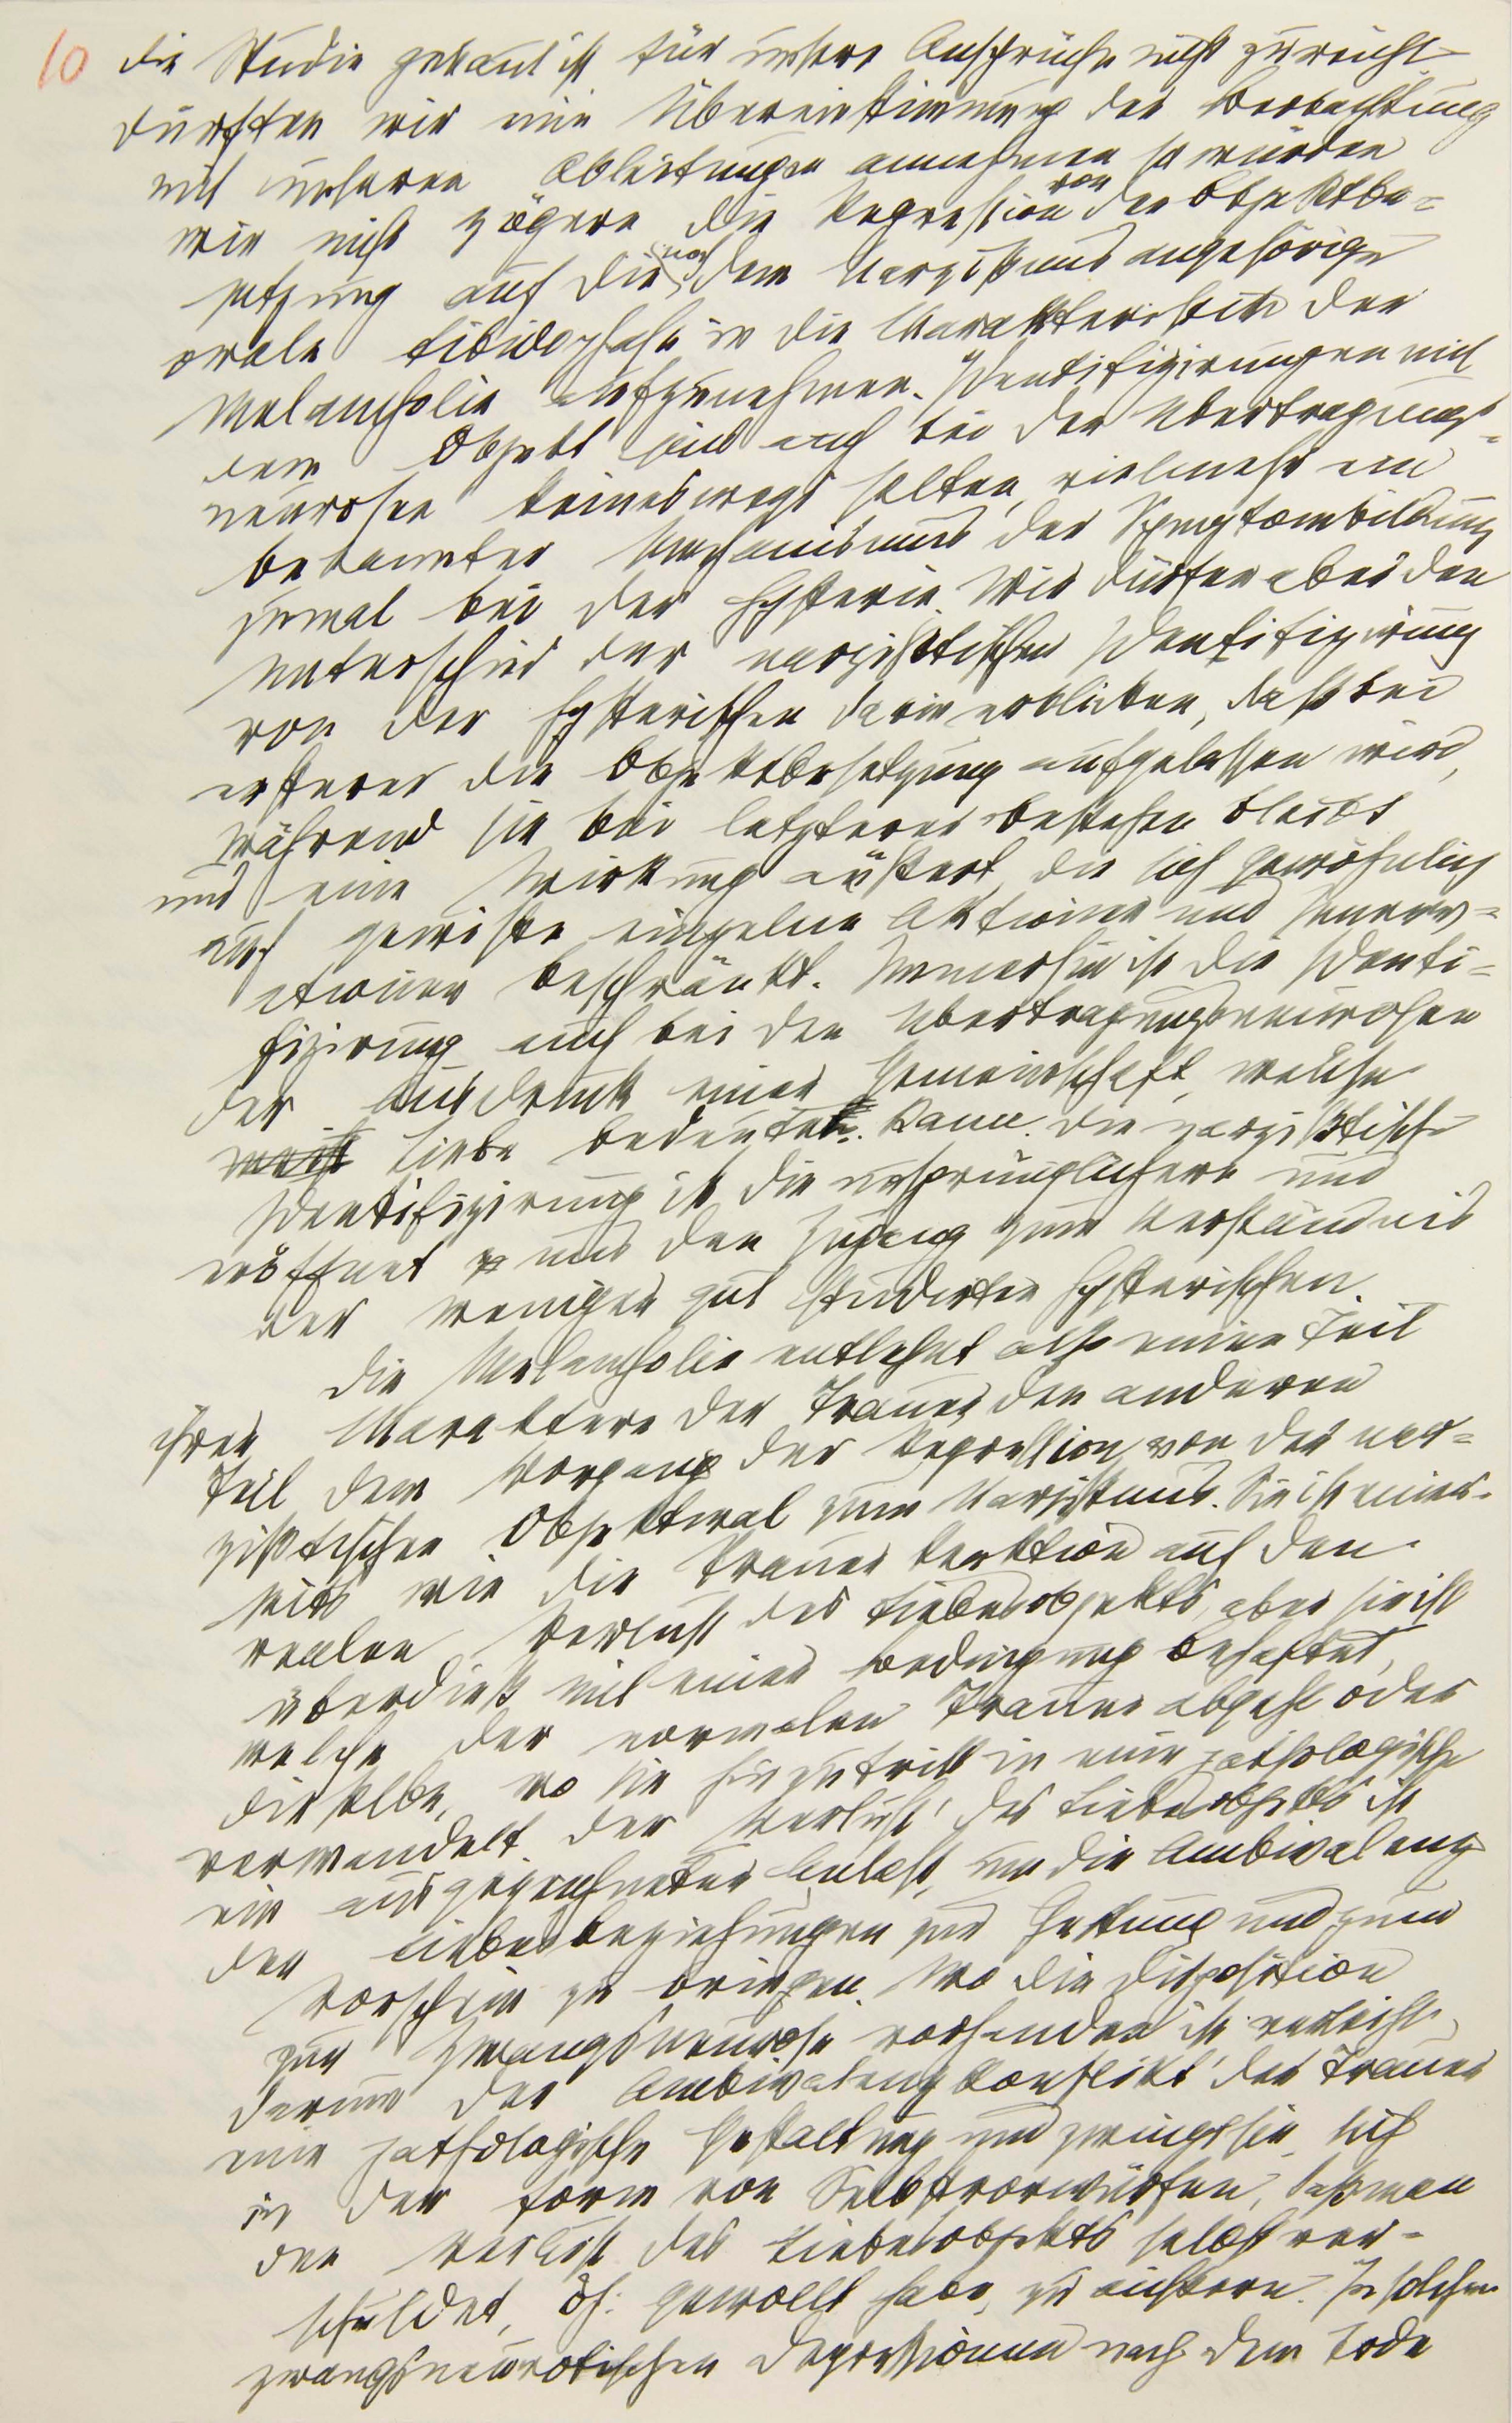 10 die Studie gebaut ist für unsere Ansprüche nicht zureicht
dürften wir eine Übereinstimmung der Beobachtung
mit unseren Ableitungen annehmen so würden
wir nicht zögern die Regression von der Objektbe=
setzung auf die noch dem Narzißmus angehörige
orale Libidophase in die Charakteristik der
Melancholie aufzunehmen. Identifizirungen mit
dem Objekt sind auch bei den Übertragungs=
neurosen keineswegs selten, vielmehr ein
bekannter Mechanismus der Symptombildung
zumal bei der Hysterie. Wir dürfen aber den
Unterschied der narzißtischen Identifizirung
von der hysterischen darin erblicken, daß bei
ersterer die Objektbesetzung aufgelassen wird,
während sie bei letzterer bestehen bleibt
und eine Wirkung äußert, die sich gewöhnlich
auf gewisse einzelne Aktionen und Innerv=
ationen beschränkt. Immerhin ist die Identi=
fizirung auch bei den Übertragungsneurosen
der Ausdruck einer Gemeinschaft, welche
Liebe bedeuten kann. Die narzißtische
Identifizirung ist die ursprünglichere und
eröffnet uns den Zugang zum Verständnis
der weniger gut studirten hysterischen.
Die Melancholie entlehnt also einen Teil
ihrer Charaktere der Trauer, den anderen
Teil dem Vorgang der Regression von der nar=
zißtischen Objektwal zum Narzißmus. Sie ist einer=
seits wie die Trauer Reaktion auf den
realen Verlust des Liebesobjekts, aber sie ist
überdieß mit einer Bedingung behaftet,
welche der normalen Trauer abgeht oder
dieselbe, wo sie hinzutritt in eine pathologische
verwandelt. Der Verlust des Liebesobjekts ist
ein ausgezeichneter Anlaß, um die Ambivalenz
der Liebesbeziehungen zur Geltung und zum
Vorschein zu bringen. Wo die Disposition
zur Zwangsneurose vorhanden ist, verleiht
darum der Ambivalenzkonflikt der Trauer
eine pathologische Gestaltung und zwingt sie, sich
in der Form von Selbstvorwürfen, daß man
den Verlust des Liebesobjekts selbst ver=
schuldet, dh. gewollt habe, zu äußern. In solchen
zwangsneurotischen Depressionen nach dem Tode